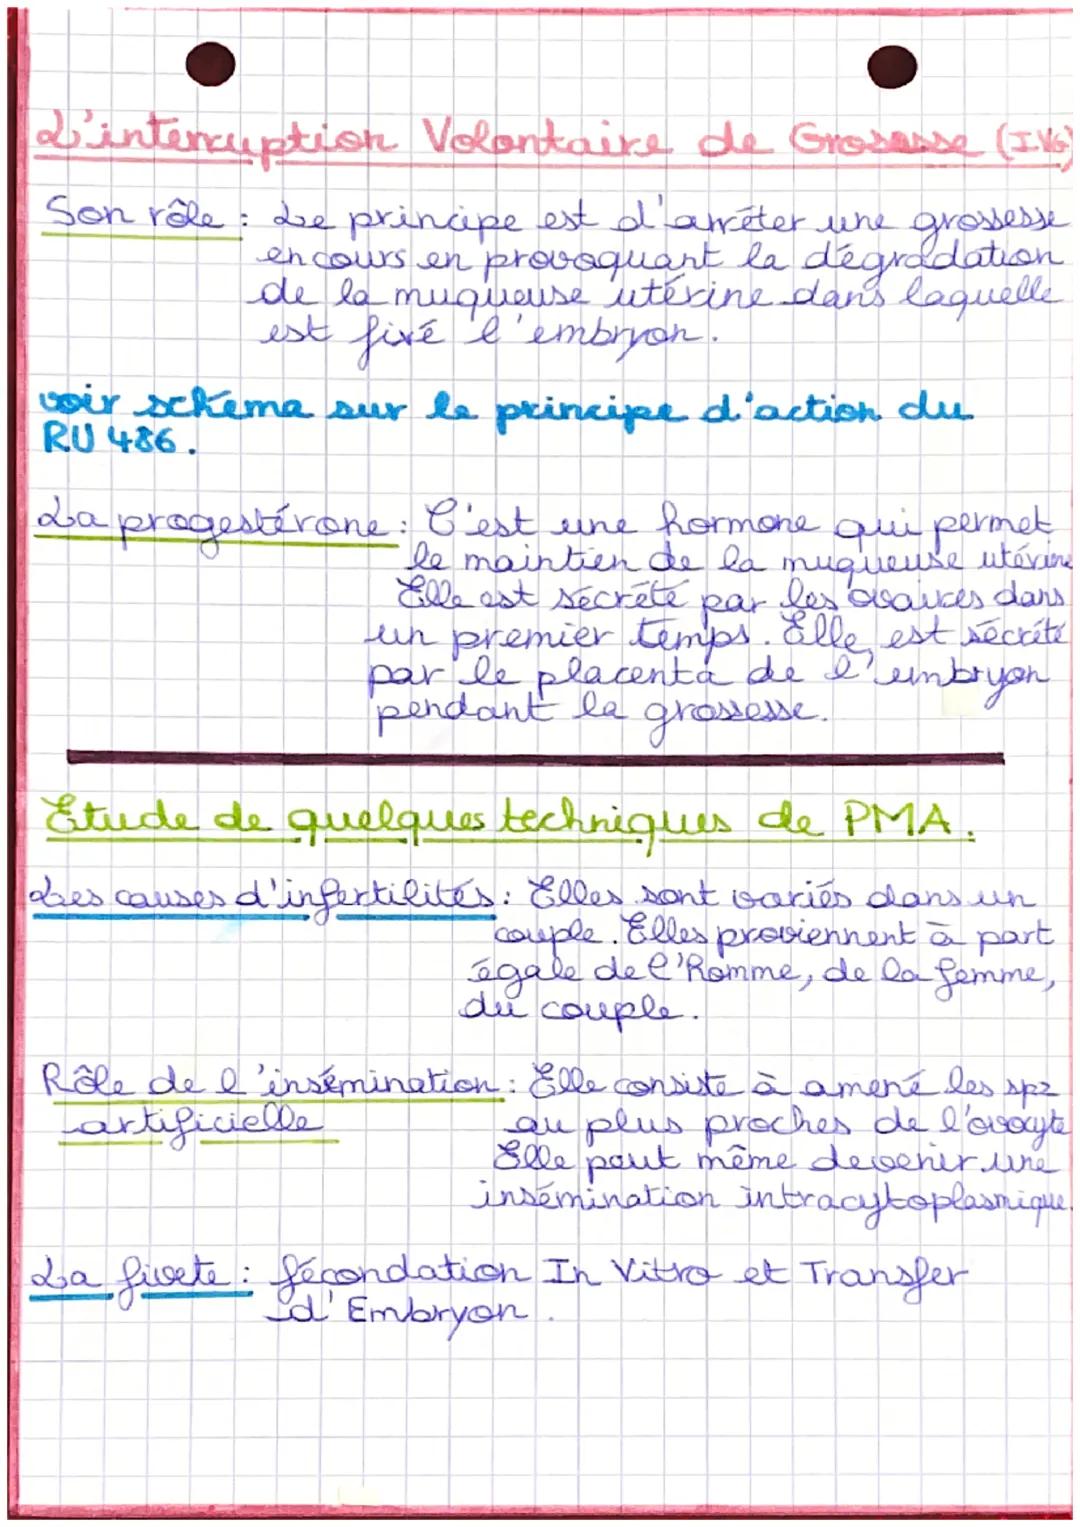 L'interruption Volontaire de Grossesse (IVG)
Son rôle : Le principe est d'arrêter une grossesse
en cours en provoquant la dégradation
de la muqueuse utérine dans laquelle
est fixé l'embryon.
voir schéma sur le principe d'action du
RU 486.
La progestérone : C'est une hormone qui permet
le maintien de la muqueuse utérine
Elle est sécrété par les ovaires dans
un premier temps. Elle est sécrété
par le placenta de l'embryon
pendant la grossesse.
Etude de quelques techniques de PMA.
Les causes d'infertilités : Elles sont variés dans un
couple. Elles proviennent à part
égale de l'homme, de la femme,
du couple.
Rôle de l'insémination : Elle consiste à amené les spz
artificielle au plus proches de l'ovocyte
Elle peut même devenir une
insémination intracytoplasmique.
La fivete : fécondation In Vitro et Transfer
d'Embryon.